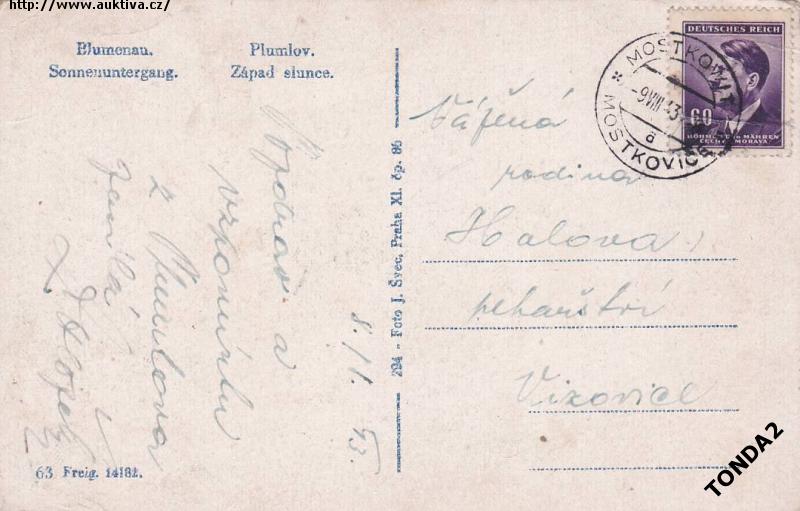 http://www.auktiva.cz/
Blumenau.
Sonnenuntergang.
Plumlov.
Západ slunce.
DEUTSCHES REICH
60
BÖHMEN u. MÄHREN
ČECHY a MORAVA
MOSTKOWITZ
-9.VIII.43
a
* MOSTKOVICE
Vážená
rodina
Halova
pekařství
Vizovice
294 - Foto J. Švec, Praha XI. čp. 86
Pozdrav a
vzpomínku
z Plumlova
63 Freig. 14182.
TONDA2